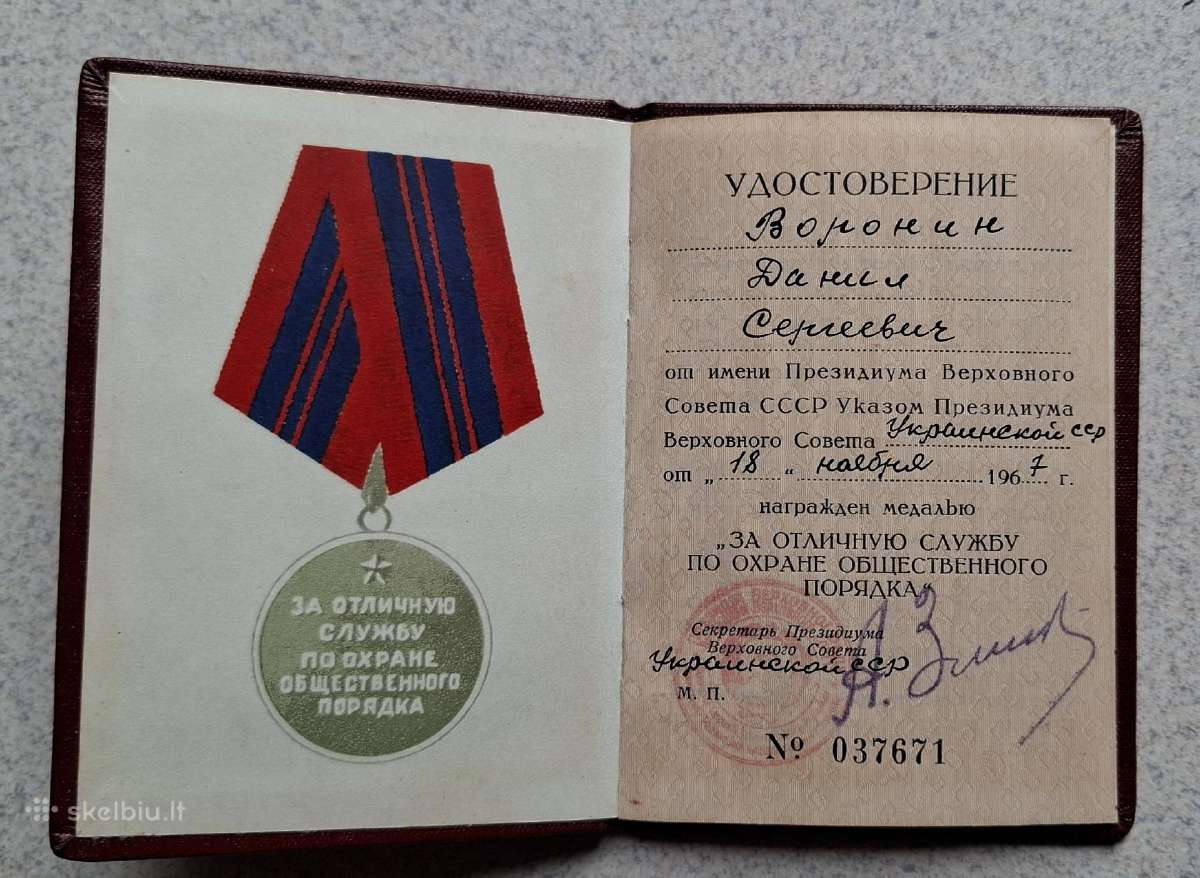 ЗА ОТЛИЧНУЮ
СЛУЖБУ
ПО ОХРАНЕ
ОБЩЕСТВЕННОГО
ПОРЯДКА
УДОСТОВЕРЕНИЕ
Воронин
Данил
Сергеевич
от имени Президиума Верховного
Совета СССР Указом Президиума
Верховного Совета Украинской ССР
от „ 18 “ ноября 1967 г.
награжден медалью
„ЗА ОТЛИЧНУЮ СЛУЖБУ
ПО ОХРАНЕ ОБЩЕСТВЕННОГО
ПОРЯДКА“
Секретарь Президиума
Верховного Совета
Украинской ССР
М. П.
№ 037671
skelbiu.lt